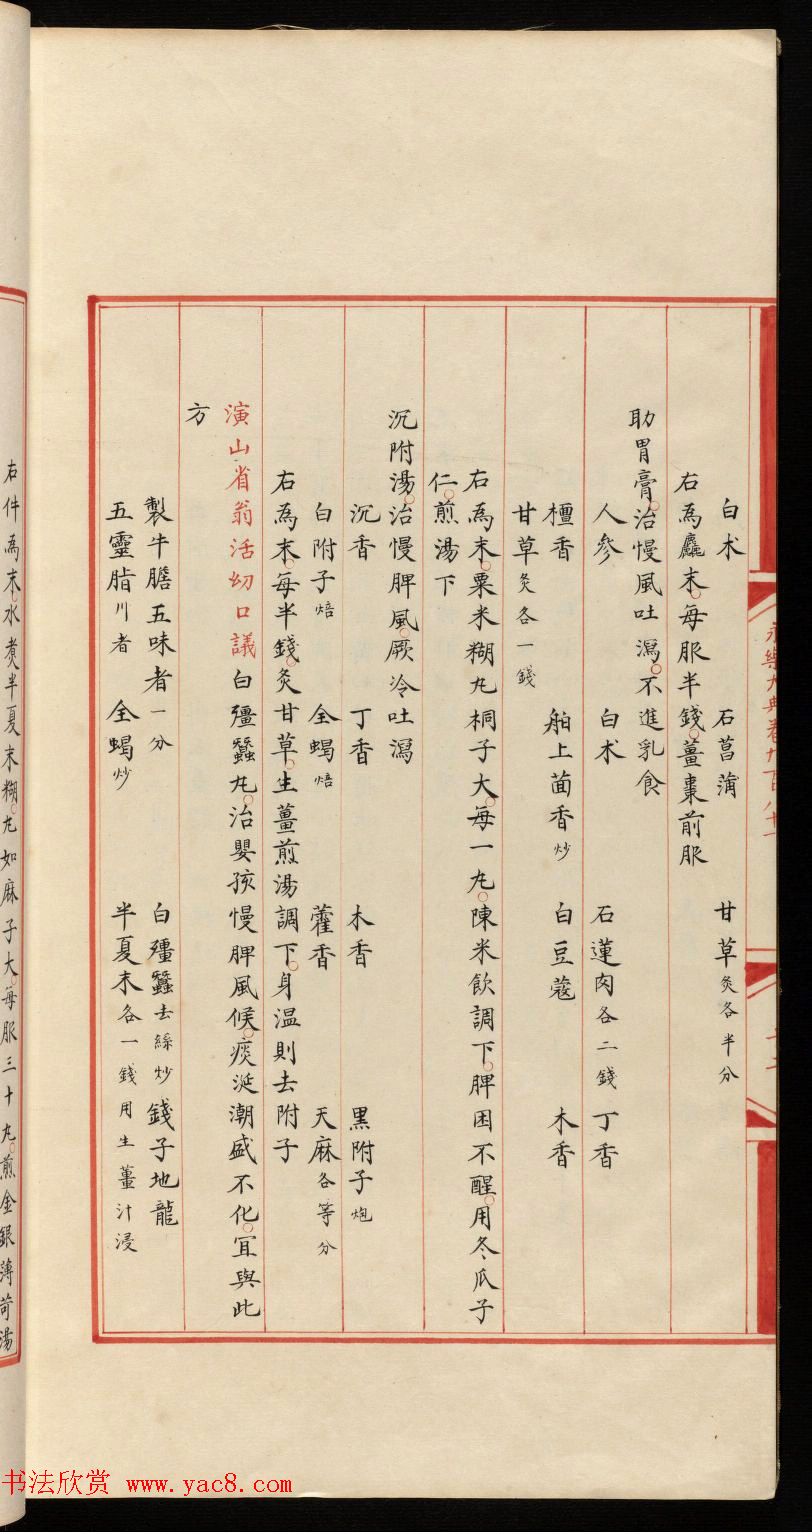 永樂大典卷九百八十一
白朮 石菖蒲 甘草炙各半分
右為麤末。每服半錢。薑棗前服
助胃膏。治慢風吐瀉。不進乳食
人參 白朮 石蓮肉各二錢 丁香
檀香 舶上茴香炒 白豆蔻 木香
甘草炙各一錢
右為末。粟米糊丸桐子大。每一丸。陳米飲調下。脾困不醒。用冬瓜子
仁。煎湯下
沉附湯。治慢脾風。厥冷吐瀉
沉香 丁香 木香 黑附子炮
白附子焙 全蝎焙 藿香 天麻各等分
右為末。每半錢。炙甘草。生薑煎湯調下。身温則去附子
演山省翁活幼口議白殭蠶丸。治嬰孩慢脾風候。痰涎潮盛不化。冝與此
方
製牛膽五味者一分 白殭蠶去絲炒 錢子地龍
五靈脂川者 全蝎炒 半夏末各一錢用生薑汁浸
右件為末。水煑半夏末糊。丸如麻子大。每服三十丸。煎金銀薄荷湯
书法欣赏 www.yac8.com